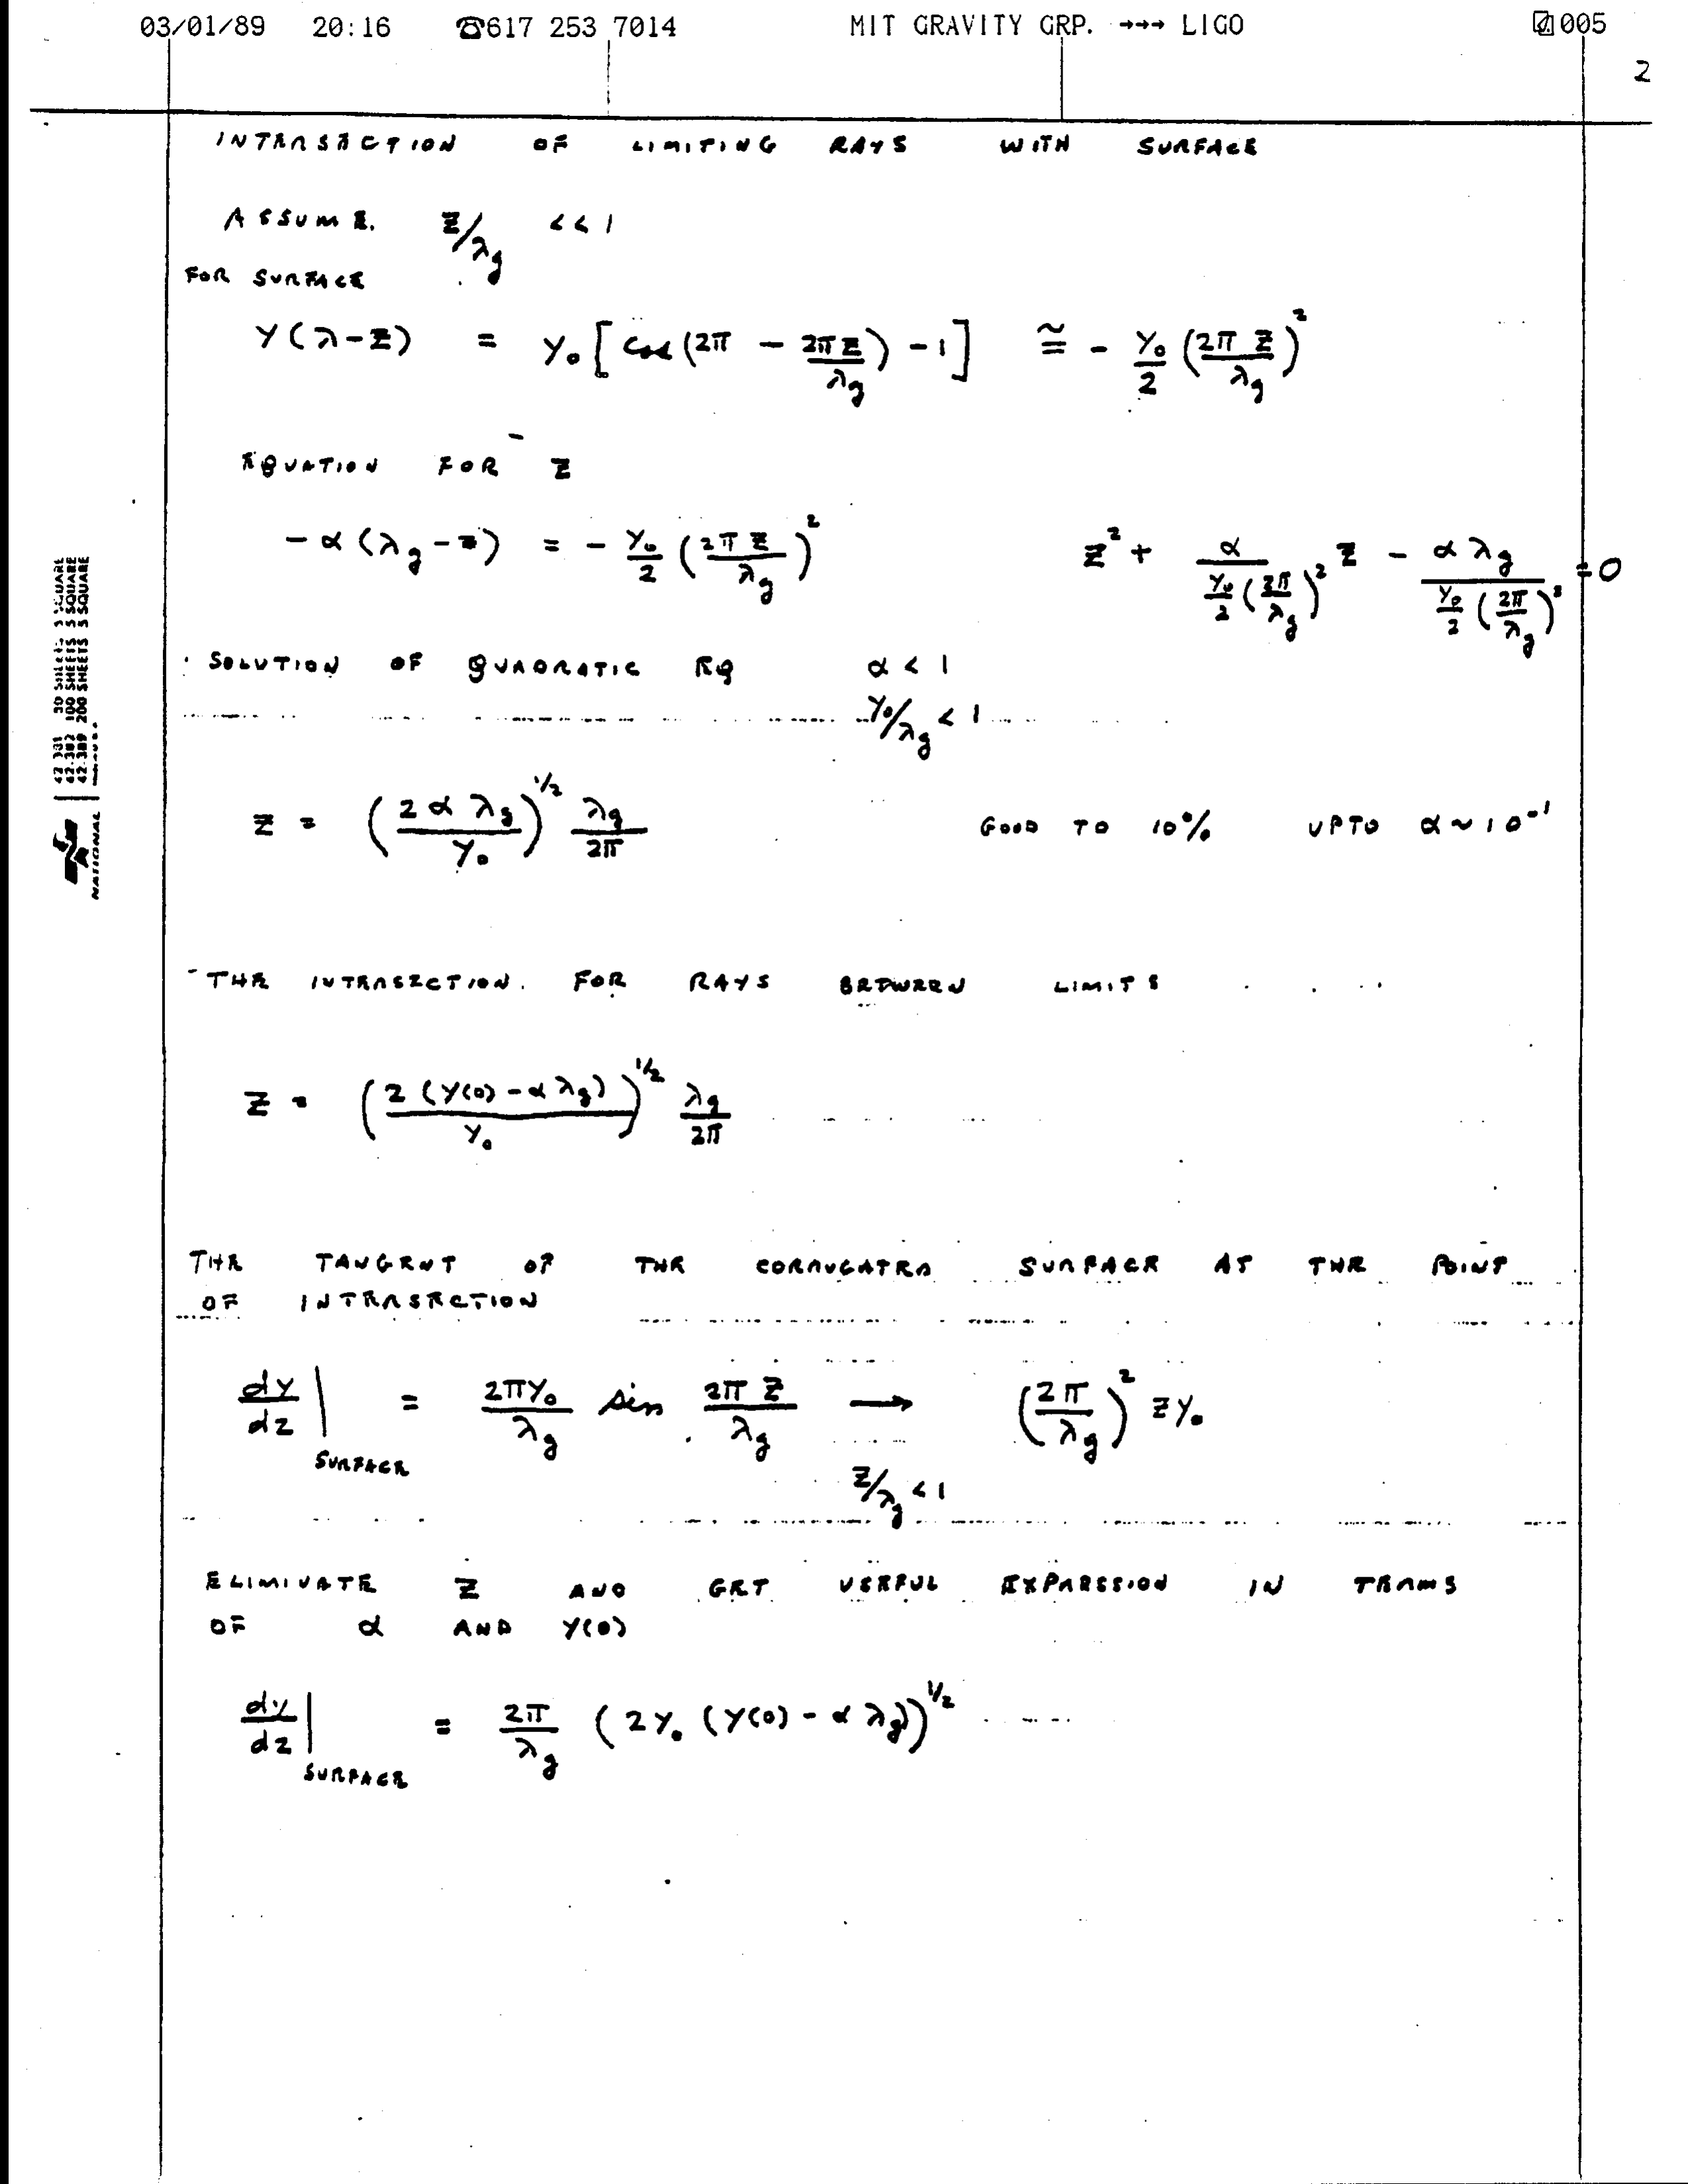 03/01/89 20:16 ☎617 253 7014 MIT GRAVITY GRP. →→→ LIGO 005
2
INTERSECTION OF LIMITING RAYS WITH SURFACE
ASSUME. Z/λg << 1
FOR SURFACE
Y(λ-Z) = Y₀[cos(2π - 2πZ/λg) - 1] ≅ - Y₀/2 (2πZ/λg)²
EQUATION FOR Z
-α(λg - Z) = - Y₀/2 (2πZ/λg)² Z² + α/(Y₀/2 (2π/λg)²) Z - αλg/(Y₀/2 (2π/λg)²) = 0
SOLUTION OF QUADRATIC EQ α < 1
Y₀/λg < 1
Z = (2αλg/Y₀)^1/2 λg/2π GOOD TO 10% UPTO α ~ 10⁻¹
THE INTERSECTION. FOR RAYS BETWEEN LIMITS
Z = (2(Y(0) - αλg)/Y₀)^1/2 λg/2π
THE TANGENT OF THE CORRUGATED SURFACE AT THE POINT
OF INTERSECTION
dy/dz|SURFACE = 2πY₀/λg sin 2πZ/λg → (2π/λg)² ZY₀
Z/λg < 1
ELIMINATE Z AND GET USEFUL EXPRESSION IN TERMS
OF α AND Y(0)
dy/dz|SURFACE = 2π/λg (2Y₀(Y(0) - αλg))^1/2
42-382 100 SHEETS 5 SQUARE
42-389 200 SHEETS 5 SQUARE
NATIONAL